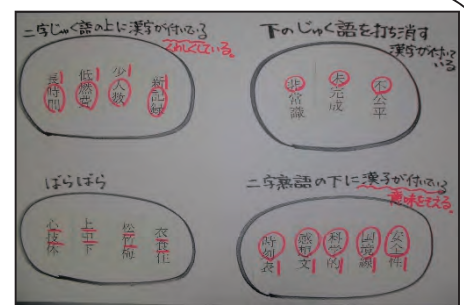 二字じゅく語の上に漢字が付いている
くわしくしている。
長時間
低燃費
少人数
新記録
下のじゅく語を打ち消す
漢字が付いて
いる
非常識
未完成
不公平
ばらばら
心技体
上中下
松竹梅
衣食住
二字熟語の下に漢字が付いている
意味をそえる。
時刻表
感想文
科学的
国境線
安全性